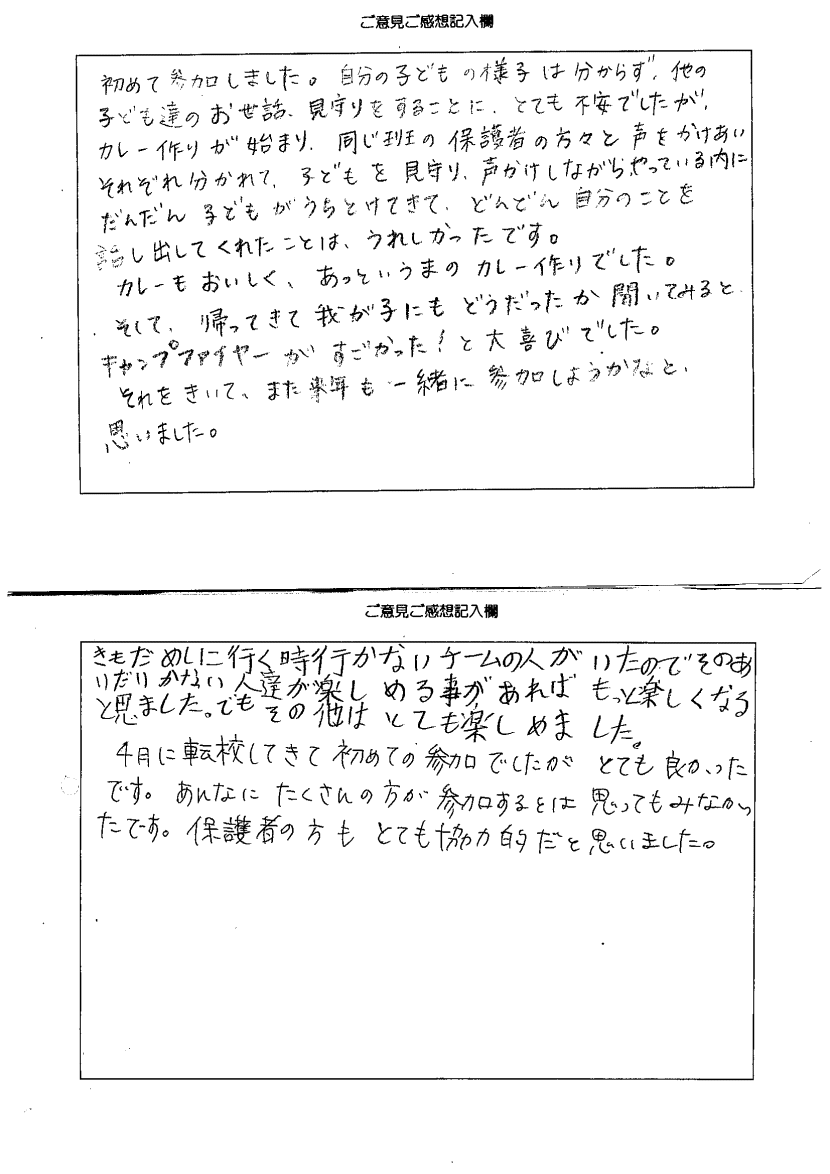 ご意見ご感想記入欄
初めて参加しました。自分の子どもの様子は分からず、他の
子ども達のお世話、見守りをすることに、とても不安でしたが、
カレー作りが始まり、同じ班の保護者の方々と声をかけあい
それぞれ分かれて、子どもを見守り、声かけしながらやっている内に
だんだん子どもがうちとけてきて、どんどん自分のことを
話し出してくれたことは、うれしかったです。
カレーもおいしく、あっというまのカレー作りでした。
そして、帰ってきて我が子にもどうだったか聞いてみると、
キャンプファイヤーがすごかった!と大喜びでした。
それをきいて、また来年も一緒に参加しようかなと、
思いました。
ご意見ご感想記入欄
きもだめしに行く時行かないチームの人がいたのでそのあ
いだいかない人達が楽しめる事があればもっと楽しくなる
と思ました。でもその他はとても楽しめました。
4月に転校してきて初めての参加でしたがとても良かった
です。あんなにたくさんの方が参加するとは思ってもみなかっ
たです。保護者の方もとても協力的だと思いました。